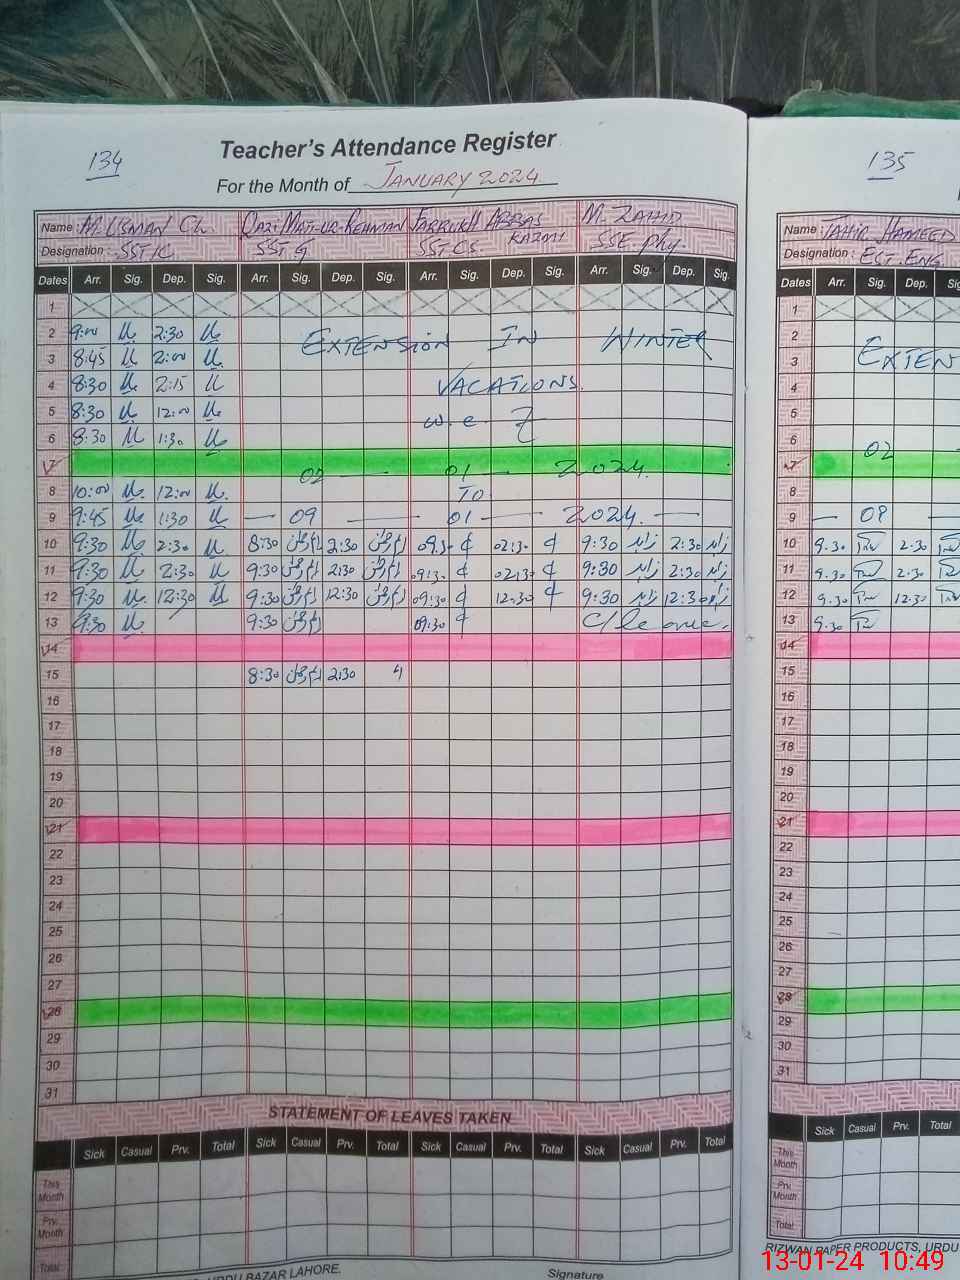 134
Teacher's Attendance Register
For the Month of JANUARY 2024
Name : M. USMAN Ch. Qazi Mati-ur-Rehman FARRUKH ABBAS KAZMI M. ZAHID
Designation : SSTIC SST G SST CS. SSE phy.
Dates Arr. Sig. Dep. Sig. Arr. Sig. Dep. Sig. Arr. Sig. Dep. Sig. Arr. Sig. Dep. Sig.
1
2 9:00 2:30 EXTENSION IN WINTER
3 8:45 2:00
4 8:30 2:15 VACATIONS
5 8:30 12:00 w.e.f
6 8:30 1:30
7 02 — 01 — 2024.
8 10:00 12:00 TO
9 9:45 1:30 — 09 — 01 — 2024. —
10 9:30 2:30 8:30 2:30 09:30 02:30 9:30 زاہد 2:30 زاہد
11 9:30 2:30 9:30 2:30 09:30 02:30 9:30 زاہد 2:30 زاہد
12 9:30 12:30 9:30 12:30 09:30 12:30 9:30 زاہد 12:30 زاہد
13 9:30 9:30 09:30 C/leave.
14
15 8:30 2:30
16
17
18
19
20
21
22
23
24
25
26
27
28
29
30
31
STATEMENT OF LEAVES TAKEN
Sick Casual Prv. Total Sick Casual Prv. Total Sick Casual Prv. Total Sick Casual Prv. Total
This Month
Prv. Month
Total
URDU BAZAR LAHORE.
Signature
135
Name : TAHIR HAMEED
Designation : EST. ENG.
Dates Arr. Sig. Dep. Sig
1
2
3 EXTEN
4
5
6 02
7
8
9 — 09 —
10 9.30 2.30
11 9.30 2.30
12 9.30 12.30
13 9.30
14
15
16
17
18
19
20
21
22
23
24
25
26
27
28
29
30
31
Sick Casual Prv. Total
This Month
Prv. Month
Total
RIZWAN PAPER PRODUCTS, URDU
13-01-24 10:49